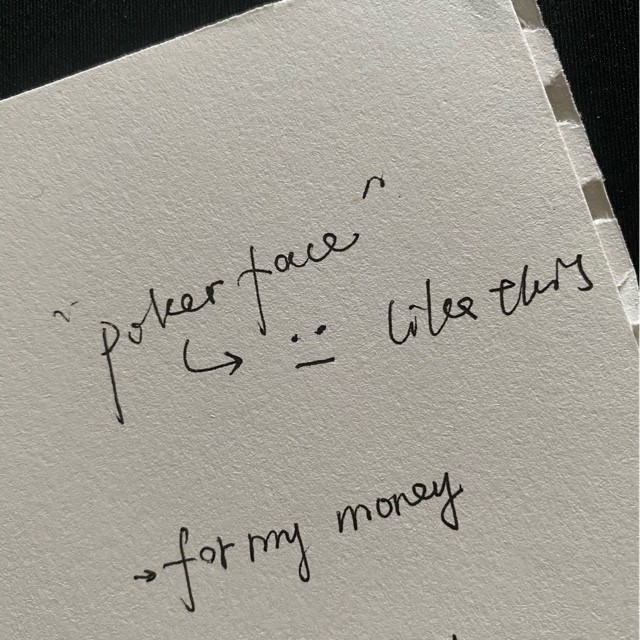 "poker face"
↳ like this
→ for my money